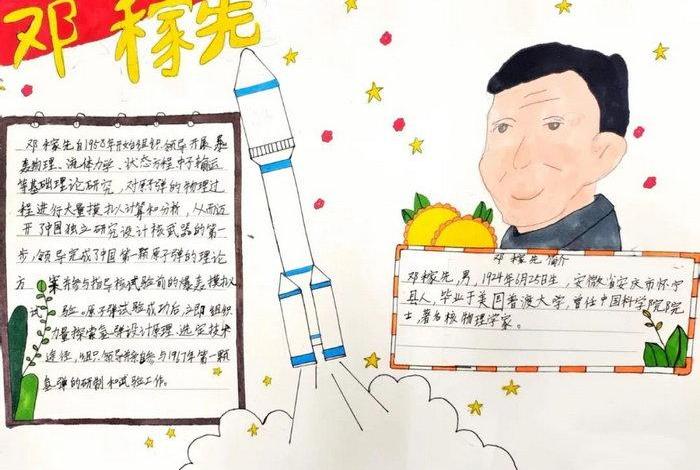 邓稼先
邓稼先自1958年开始组织领导开展爆
轰物理、流体力学、状态方程、中子输运
等基础理论研究，对原子弹的物理过
程进行大量模拟计算和分析，从而迈
开了中国独立研究设计核武器的第一
步，领导完成了中国第一颗原子弹的理论
方案并参与指导核试验前的爆轰模拟
试验。原子弹试验成功后，立即组织
力量探索氢弹设计原理、选定技术
途径，组织领导并亲自参与1967年第一颗
氢弹的研制和试验工作。
邓稼先简介
邓稼先，男，1924年6月25日生，安徽省安庆市怀宁
县人，毕业于美国普渡大学，曾任中国科学院院
士，著名核物理学家。